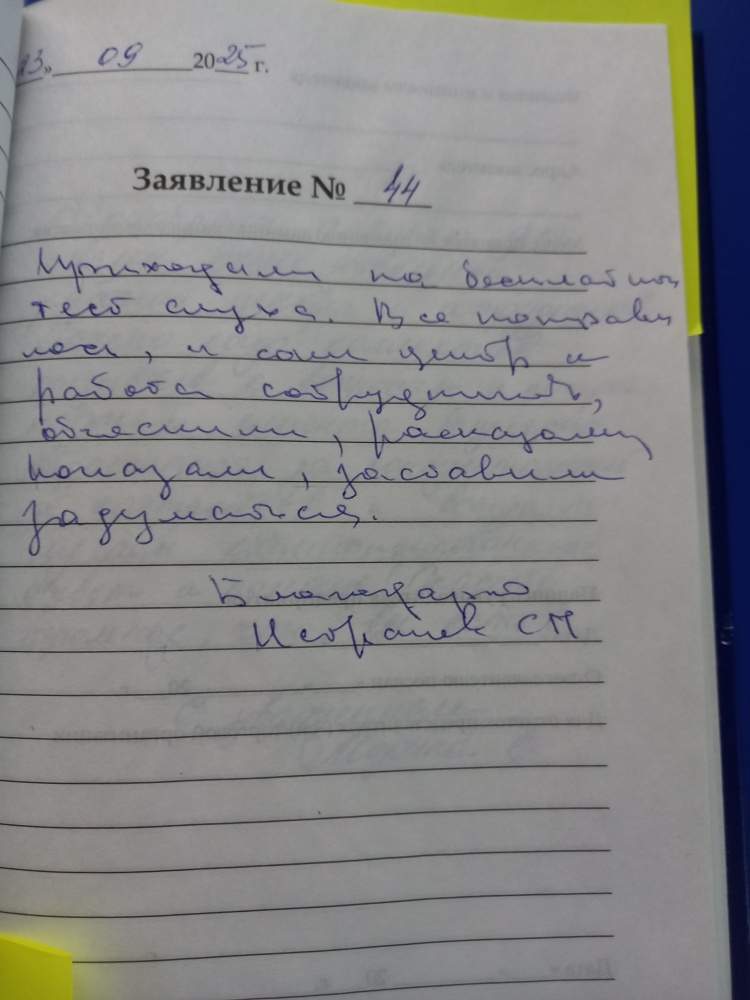 13» 09 2025 г.
Заявление № 44
Приходили на бесплатный
тест слуха. Все понрави
лось, и сам центр и
работа сотрудников,
объяснили, рассказали,
показали, заставили
задуматься.
Благодарю
СМ